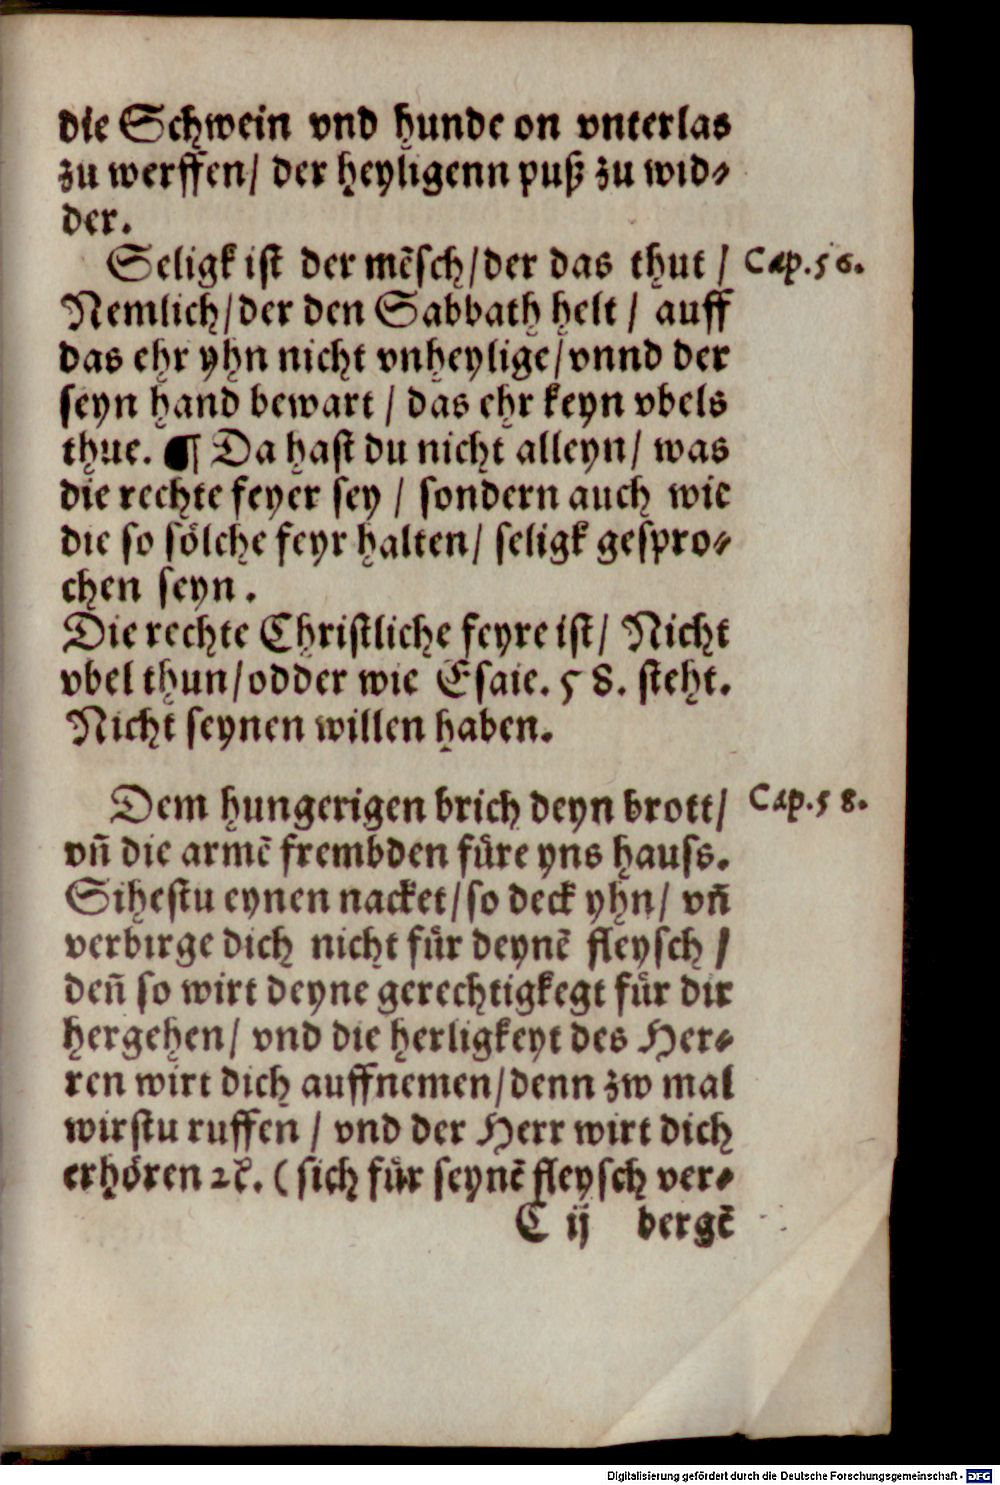 die Schwein vnd hunde on vnterlas
zu werffen/ der heyligenn puß zu wid⸗
der.
Seligk ist der mẽsch/der das thut / Cap.56.
Nemlich/der den Sabbath helt / auff
das ehr yhn nicht vnheylige/vnnd der
seyn hand bewart / das ehr keyn vbels
thue. ¶ Da hast du nicht alleyn/ was
die rechte feyer sey / sondern auch wie
die so soͤlche feyr halten/ seligk gespro⸗
chen seyn.
Die rechte Christliche feyre ist/ Nicht
vbel thun/odder wie Esaie. 58. steht.
Nicht seynen willen haben.
Dem hungerigen brich deyn brott/ Cap.58.
vñ die armẽ frembden fuͤre yns hauss.
Sihestu eynen nacket/so deck yhn/ vñ
verbirge dich nicht fuͤr deynẽ fleysch /
deñ so wirt deyne gerechtigkegt fuͤr dir
hergehen/ vnd die herligkeyt des Her⸗
ren wirt dich auffnemen/denn zw mal
wirstu ruffen / vnd der Herr wirt dich
erhoͤren ꝛc̃. ( sich fuͤr seynẽ fleysch ver⸗
C ij bergẽ
Digitalisierung gefördert durch die Deutsche Forschungsgemeinschaft - DFG